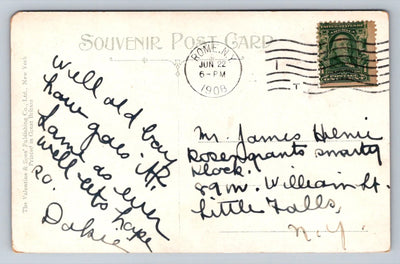 SOUVENIR POST CARD
ROME, N.Y.
JUN 22
6-PM
1908
The Valentine & Sons' Publishing Co., Ltd., New York
Printed in Great Britain
Well old boy
how goes it
as ever
well lets hope
so.
Mr. James
Rosengrants smarty
Block.
William St.
Little Falls,
N.Y.